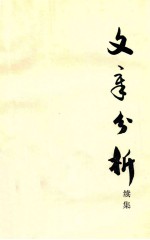 文章分析
续集